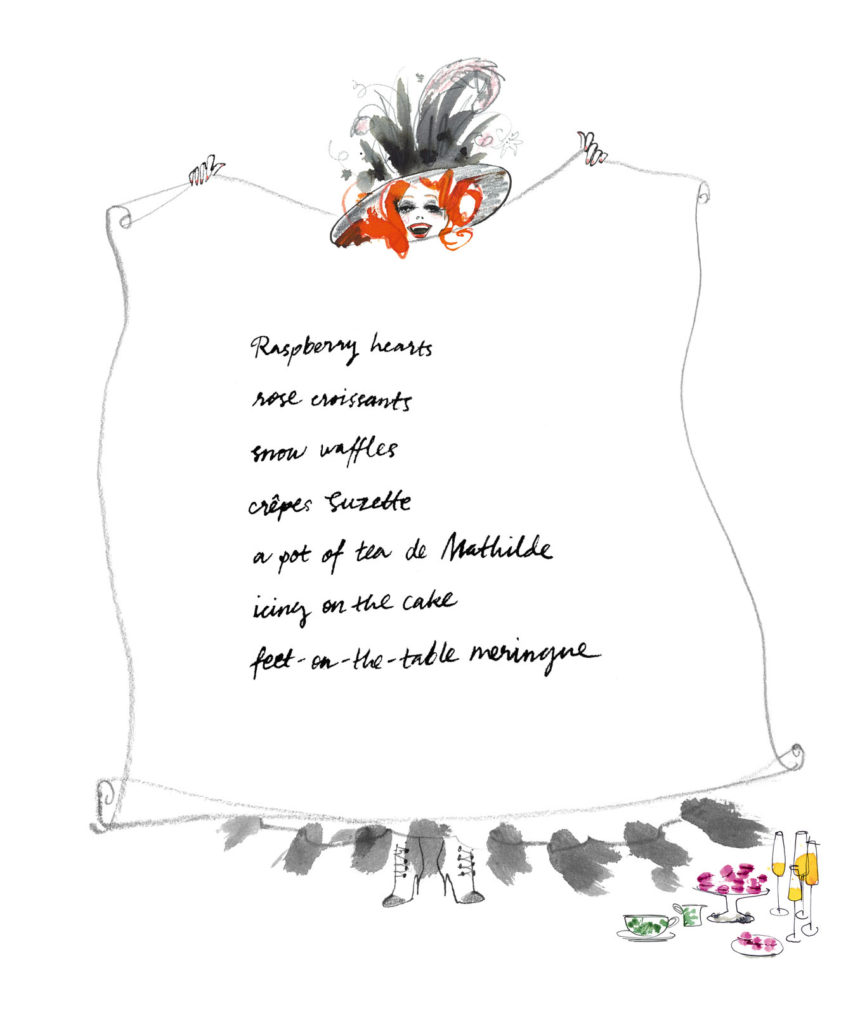 Raspberry hearts
rose croissants
snow waffles
crêpes Suzette
a pot of tea de Mathilde
icing on the cake
feet-on-the-table meringue